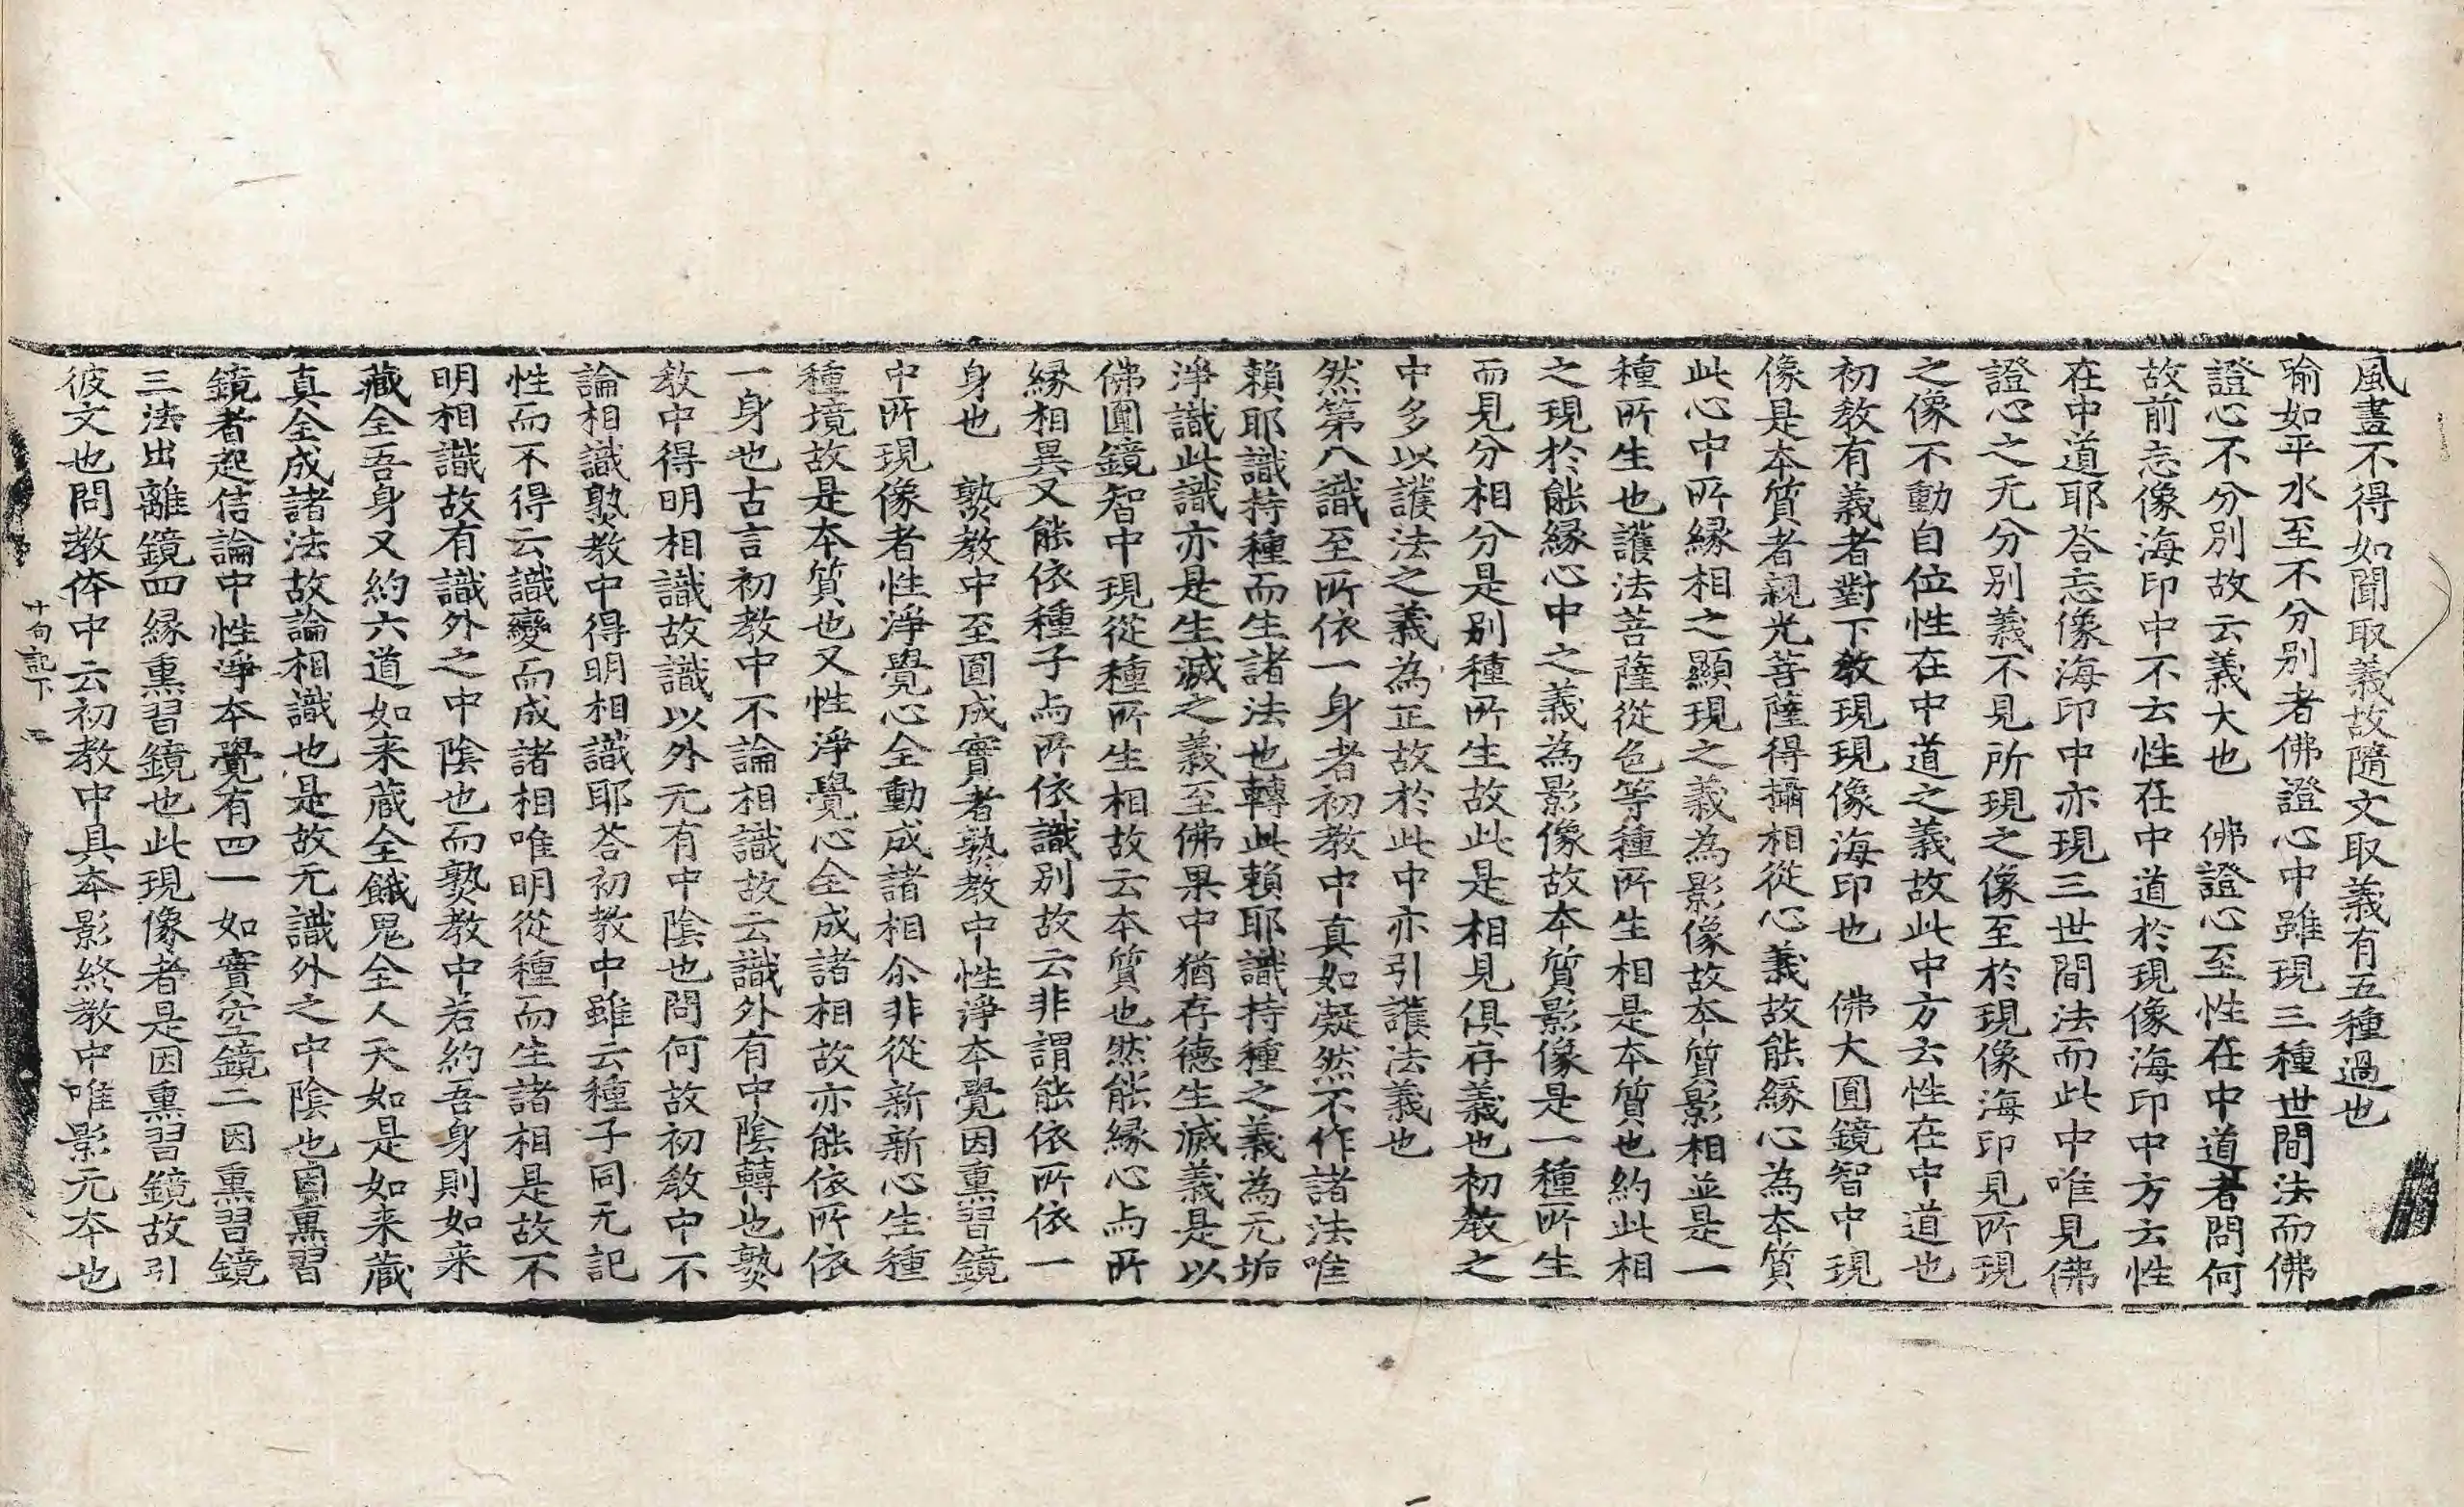 風晝不得如聞取義故隨文取義有五種過也
喻如平水至不分別者佛證心中雖現三種世間法而佛
證心不分別故云義大也　佛證心至性在中道者問何
故前忘像海印中不云性在中道於現像海印中方云性
在中道耶荅忘像海印中亦現三世間法而此中唯見佛
證心之无分别義不見所現之像至於現像海印見所現
之像不動自位性在中道之義故此中方云性在中道也
初教有義者對下教現現像海印也　佛大圓鏡智中現
像是本質者親光菩薩得攝相從心義故能緣心為本質
此心中所緣相之顯現之義為影像故本質影相並是一
種所生也護法菩薩從色等種所生相是本質也約此相
之現於能緣心中之義為影像故本質影像是一種所生
而見分相分是别種所生故此是相見俱存義也初教之
中多以護法之義為正故於此中亦引護法義也
然第八識至所依一身者初教中真如凝然不作諸法唯
賴耶識持種而生諸法也轉此賴耶識持種之義為无垢
淨識此識亦是生滅之義至佛果中猶存德生滅義是以
佛圓鏡智中現從種所生相故云本質也然能緣心与所
緣相異又能依種子与所依識別故云非謂能依所依一
身也　𤍠教中至圓成實者𤍠教中性淨本覺因熏習鏡
中所現像者性淨覺心全動成諸相尒非從新新心生種
種境故是本質也又性淨覺心全成諸相故亦能依所依
一身也古言初教中不論相識故云識外有中陰轉也𤍠
教中得明相識故識以外无有中陰也問何故初教中不
論相識𤍠教中得明相識耶荅初教中雖云種子同无記
性而不得云識變而成諸相唯明從種而生諸相是故不
明相識故有識外之中陰也而𤍠教中若約吾身則如来
藏全吾身又約六道如来藏全餓鬼全人天如是如来藏
真全成諸法故論相識也是故无識外之中陰也因熏習
鏡者起信論中性淨本覺有四一如實空鏡二因熏習鏡
三法出離鏡四緣熏習鏡也此現像者是因熏習鏡故引
彼文也問教体中云初教中具本影終教中唯影无本也
十句記下　四